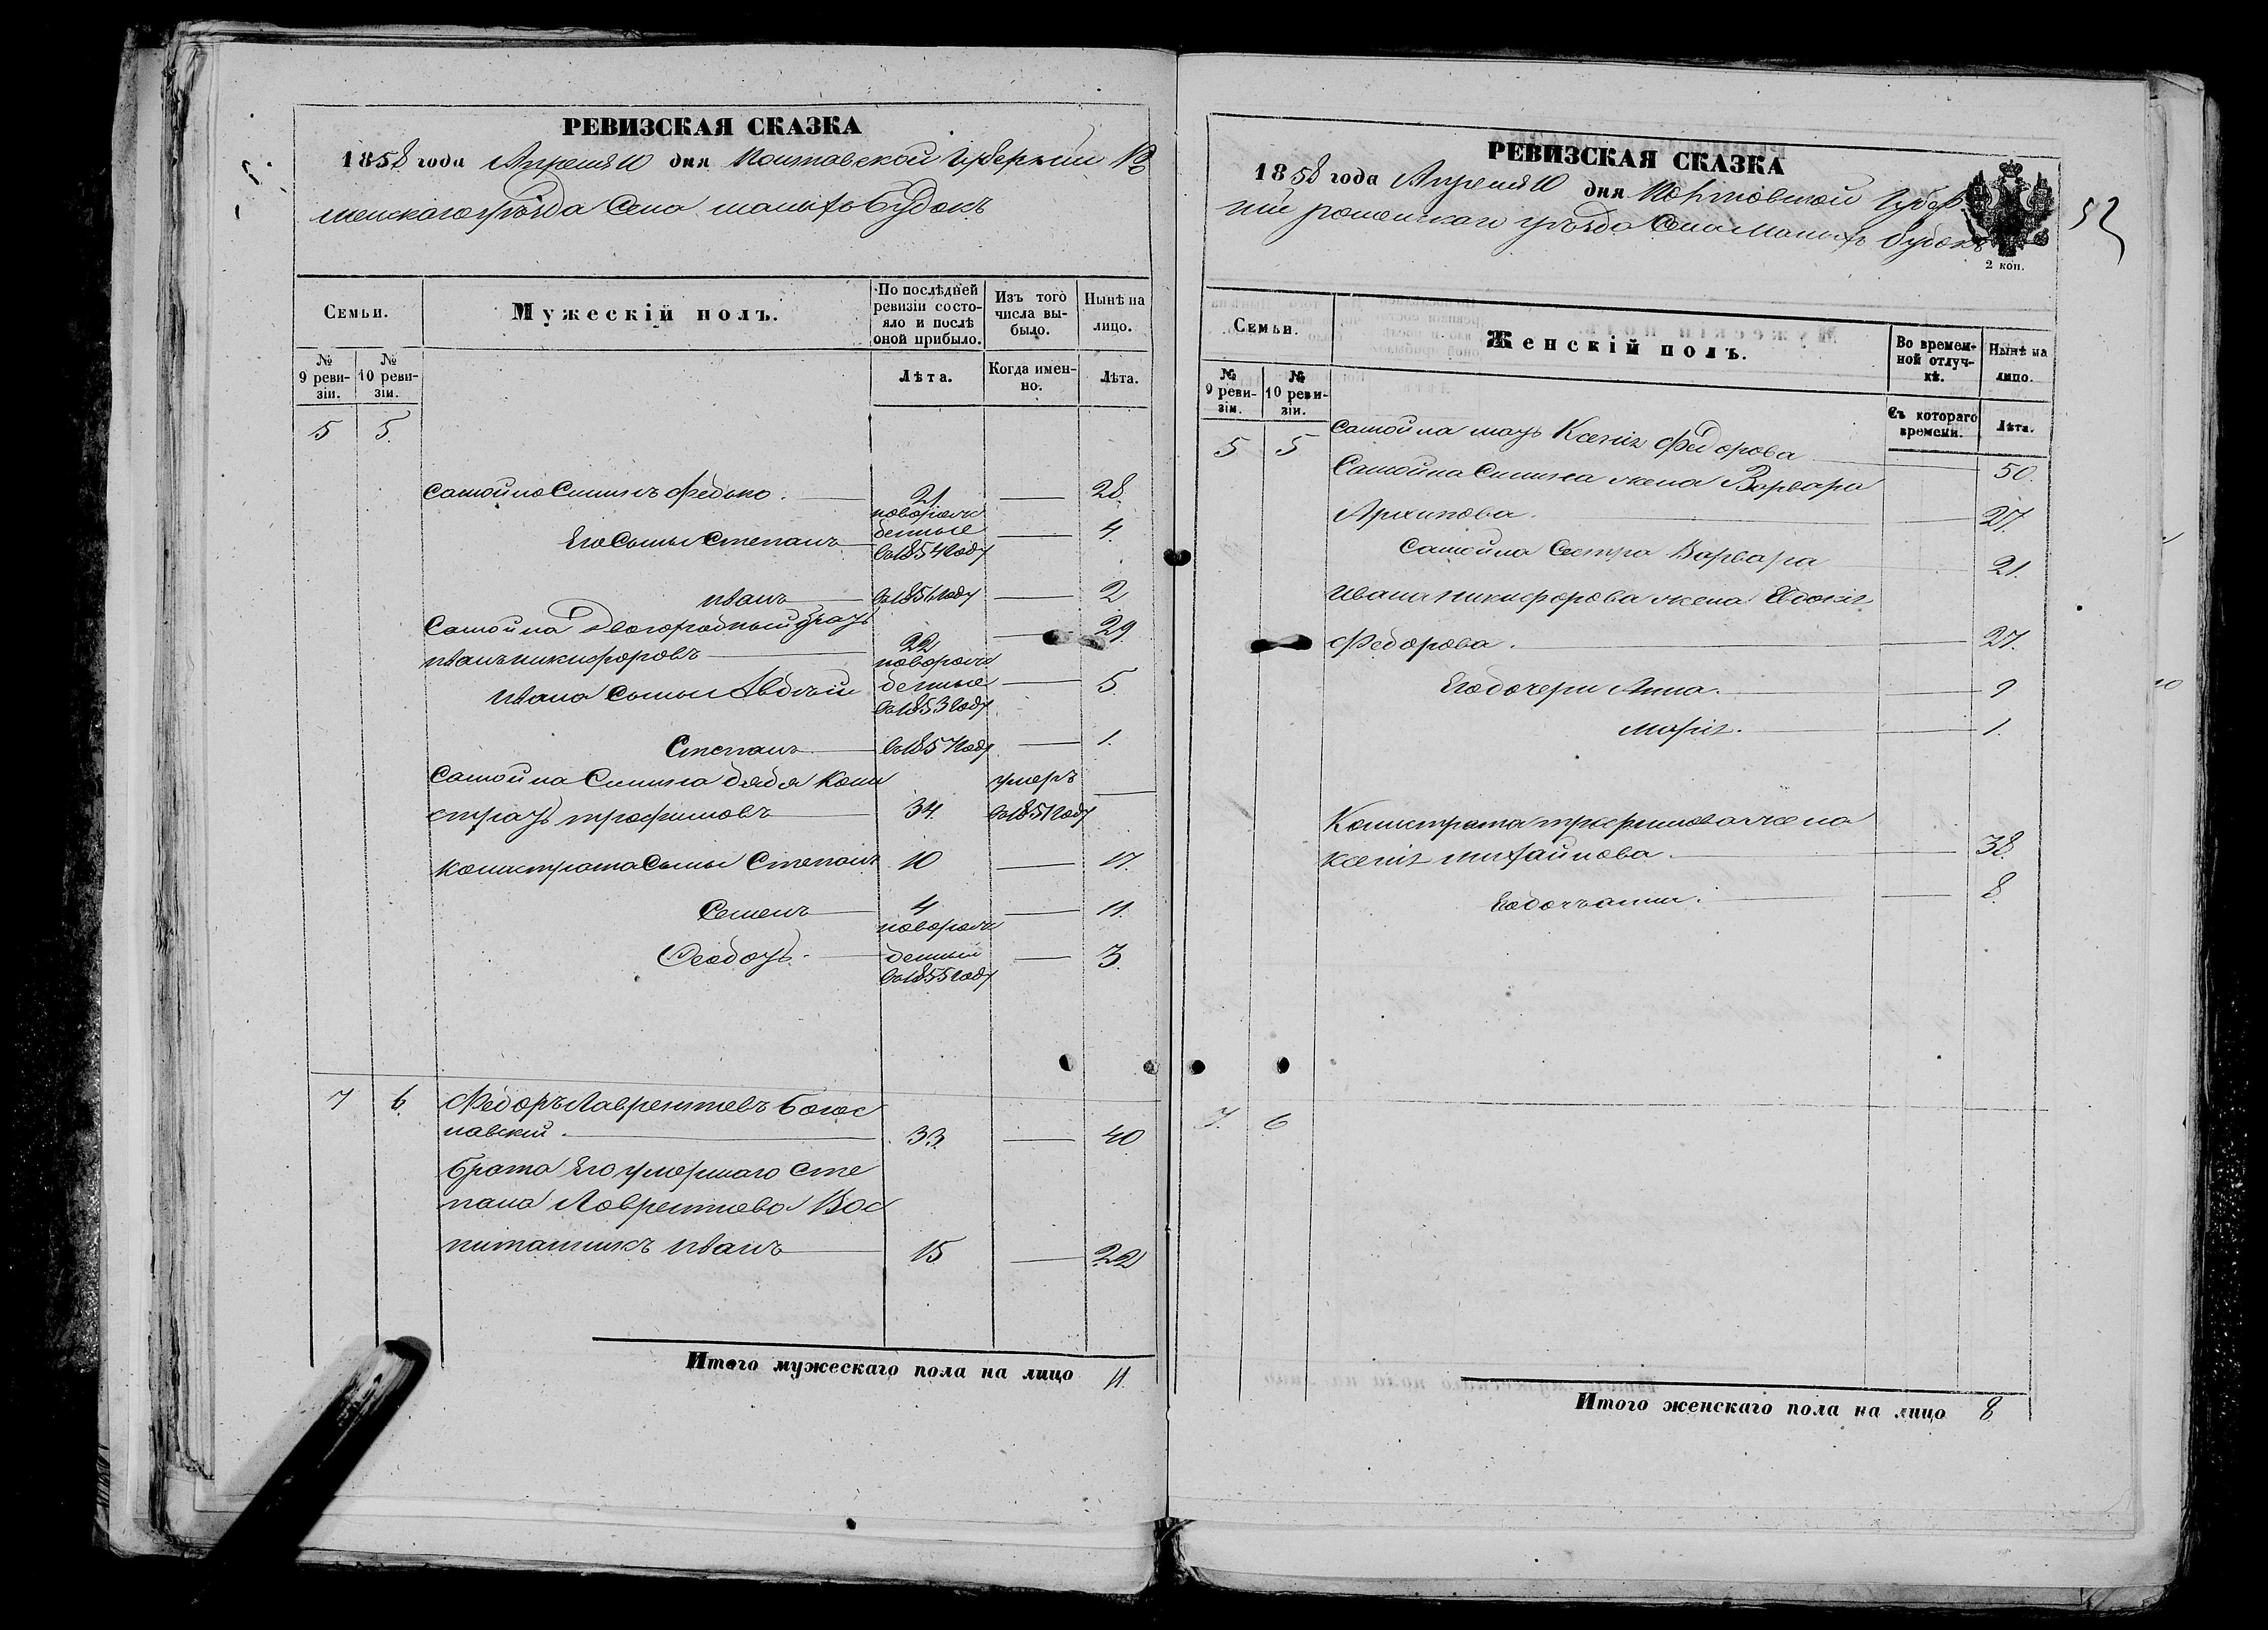 РЕВИЗСКАЯ СКАЗКА
1858 года Апреля 10 дня Полтавской Губерніи Ро
менскаго уѣзда Села малыхъ Будокъ
Семьи.
Мужескій полъ.
По послѣдней ревизіи состояло и послѣ оной прибыло.
Изъ того числа выбыло.
Нынѣ на лицо.
№ 9 ревизіи.
№ 10 ревизіи.
Лѣта.
Когда именно.
Лѣта.
5 5.
Самойло Силинъ Федько. 21 28.
Его Сыны Степанъ новорож денные въ 1854 году 4.
Иванъ въ 1856 году 2
Самойла Двоюродный братъ
Иванъ никифоровъ 22 29
Ивана Сыны Авдѣй новорож денные въ 1853 году 5
Степанъ въ 1857 году 1.
Самойла Силина дядя Кали
стратъ трофимовъ 34. умеръ въ 1851 году
калистрата Сыны Степанъ 10 17.
Семенъ 4 11.
Феодотъ. новорож денный въ 1855 году 3.
7 6. Федоръ Лаврентіевъ Богос
лавскій. 33. 40
брата Его умершаго Сте
пана Лаврентіева Вос
питанникъ Иванъ 15 22
Итого мужескаго пола на лицо 11.
РЕВИЗСКАЯ СКАЗКА
1858 года Апреля 10 дня Полтавской Губер
ніи роменскаго уѣзда Села Малыхъ Будокъ
2 коп.
52
Семьи.
Женскій полъ.
Во временной отлучкѣ.
Нынѣ на лицо.
№ 9 ревизіи.
№ 10 ревизіи.
Съ котораго времени.
Лѣта.
5 5 Самойла мать Ксенія Федорова 50.
Самойла Силина жена Варвара
Архипова. 27.
Самойла Сестра Варвара 21.
Ивана никифорова жена Евдокія
Федорова. 27.
Его дочери Анна. 9
Марія. 1.
Калистрата трофимова жена
ксенія михайлова. 38.
Его дочь анна. 8
7. 6
Итого женскаго пола на лицо 8